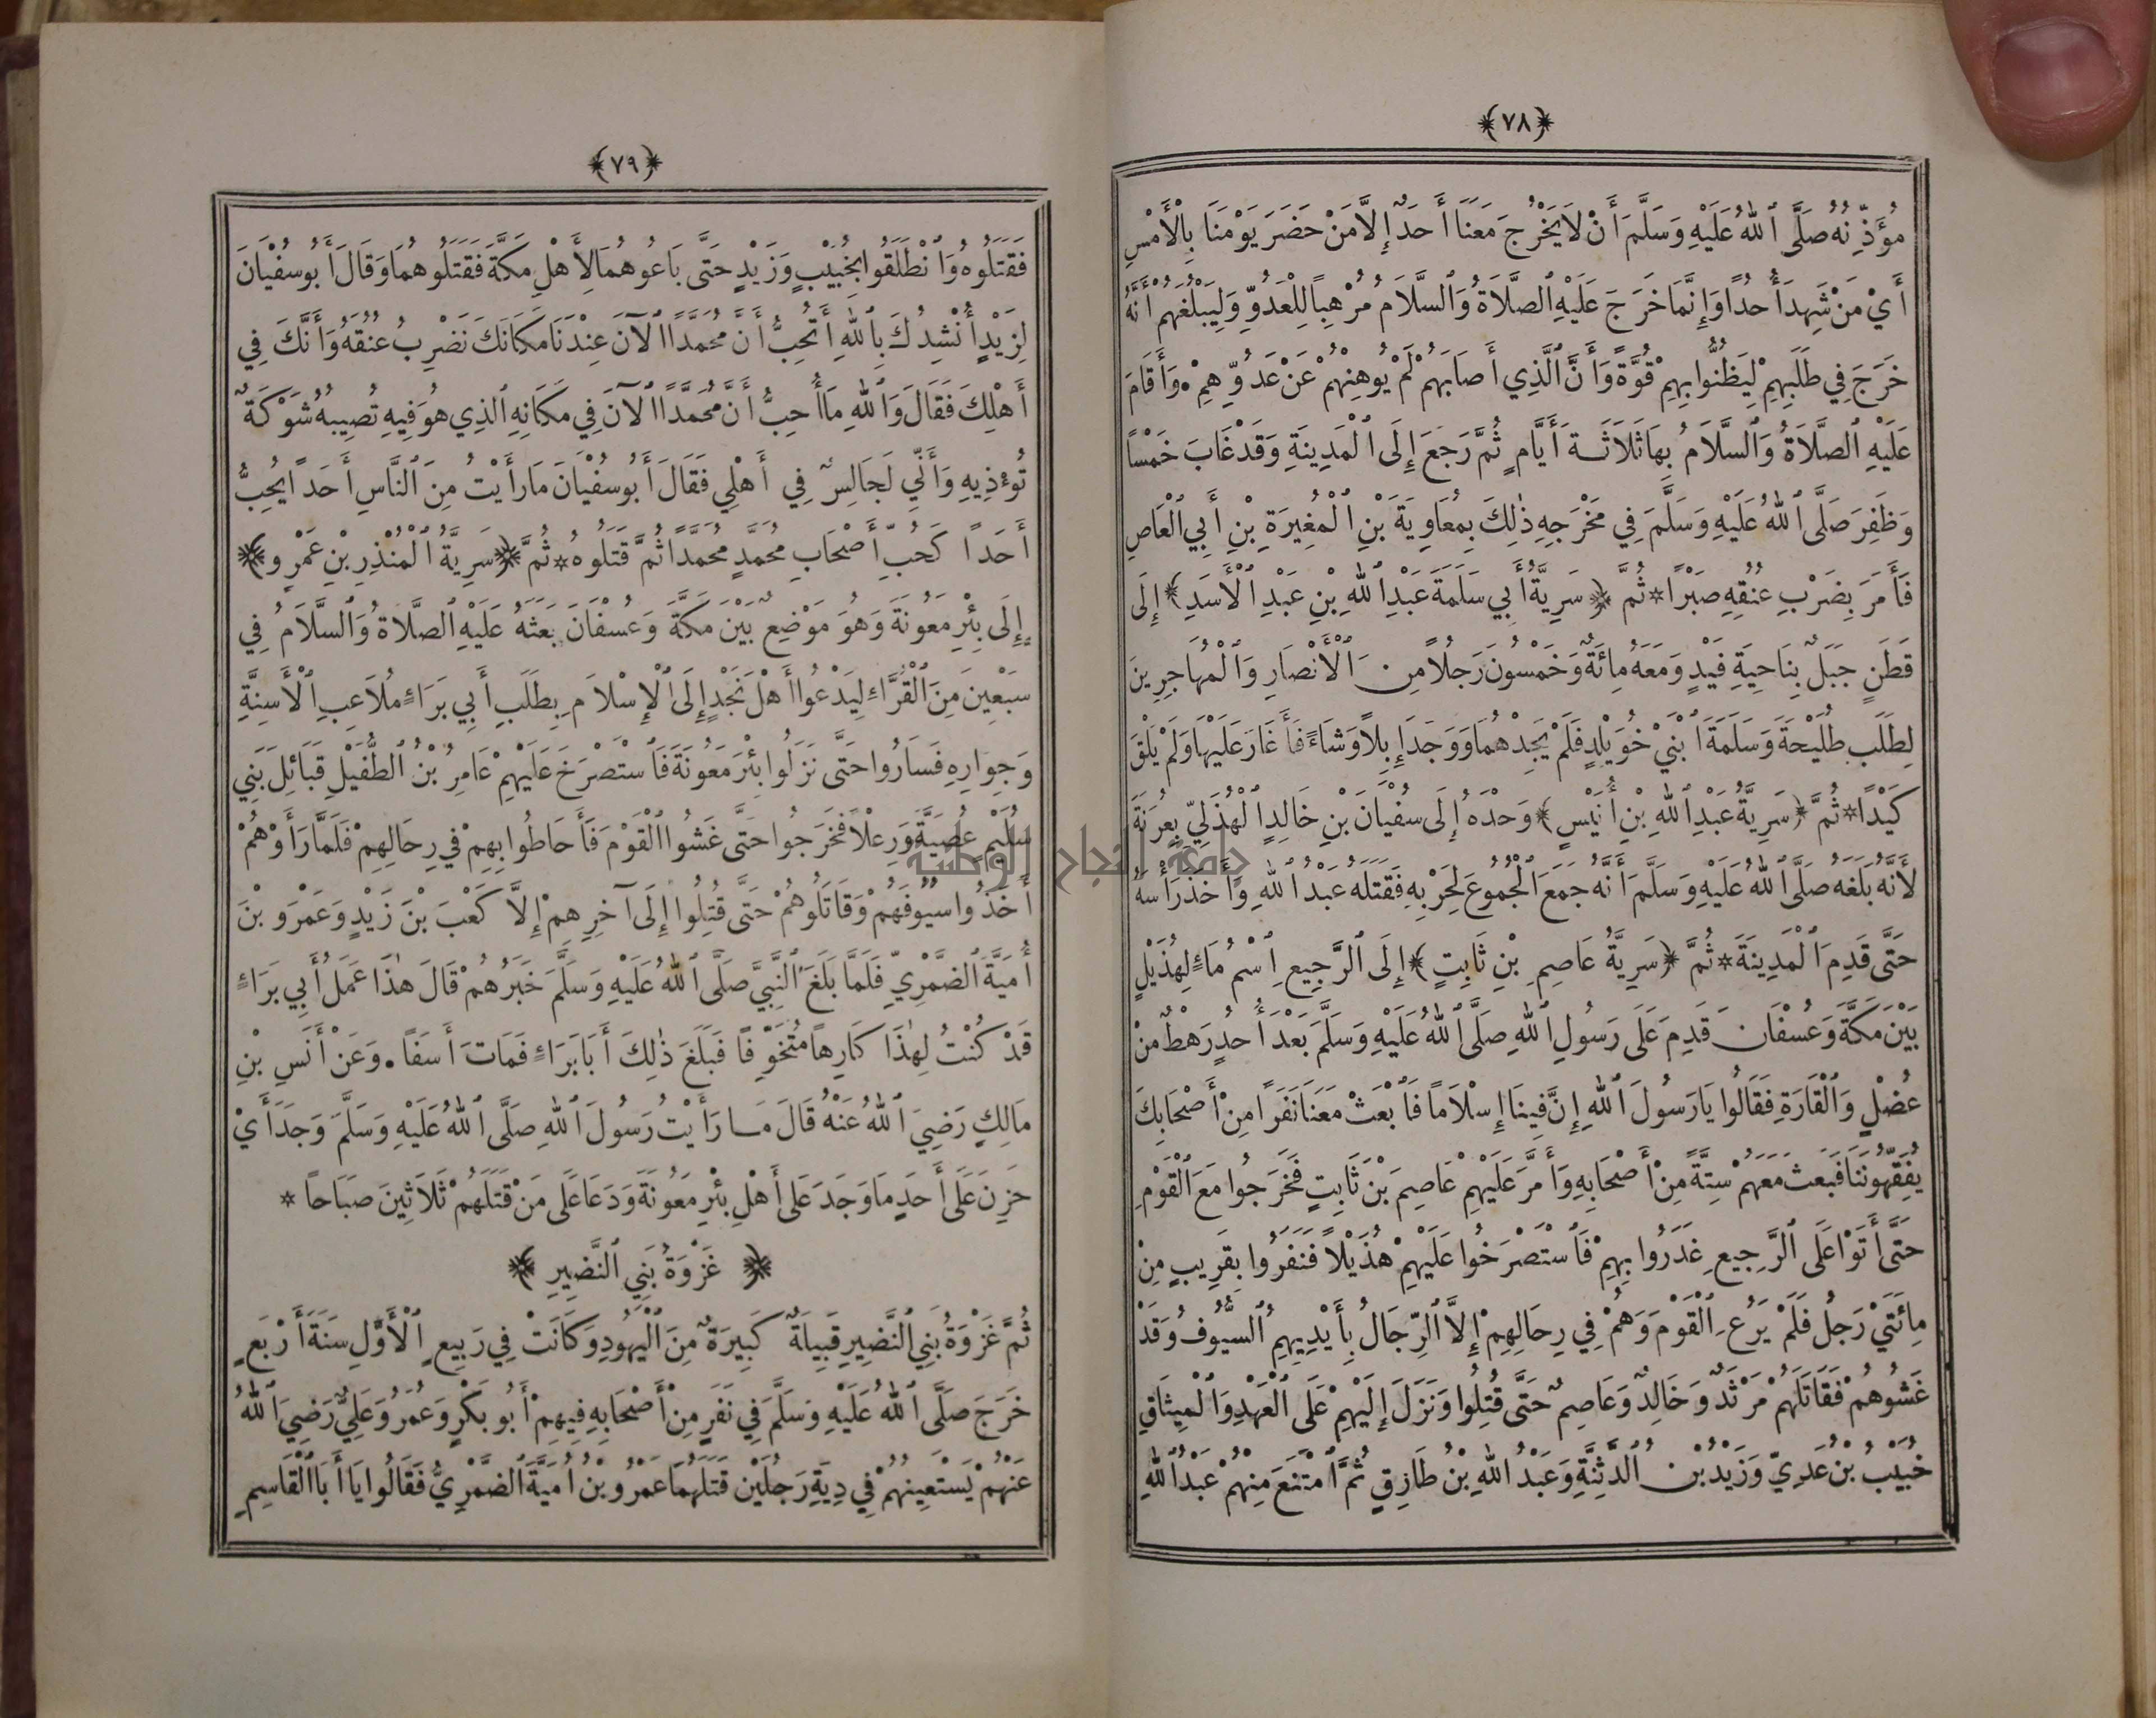 ﴿٧٨﴾
مُؤَذِّنُهُ صَلَّى ٱللهُ عَلَيْهِ وَسَلَّمَ أَنْ لَا يَخْرُجَ مَعَنَا أَحَدٌ إِلَّا مَنْ حَضَرَ يَوْمَنَا بِالْأَمْسِ
أَيْ مَنْ شَهِدَ أُحُدًا وَإِنَّمَا خَرَجَ عَلَيْهِ ٱلصَّلَاةُ وَٱلسَّلَامُ مُرْهِبًا لِلْعَدُوِّ وَلِيَبْلُغَهُمْ أَنَّهُ
خَرَجَ فِي طَلَبِهِمْ لِيَظُنُّوا بِهِمْ قُوَّةً وَأَنَّ ٱلَّذِي أَصَابَهُمْ لَمْ يُوهِنْهُمْ عَنْ عَدُوِّهِمْ. وَأَقَامَ
عَلَيْهِ ٱلصَّلَاةُ وَٱلسَّلَامُ بِهَا ثَلَاثَةَ أَيَّامٍ ثُمَّ رَجَعَ إِلَى ٱلْمَدِينَةِ وَقَدْ غَابَ خَمْسًا
وَظَفِرَ صَلَّى ٱللهُ عَلَيْهِ وَسَلَّمَ فِي مَخْرَجِهِ ذٰلِكَ بِمُعَاوِيَةَ بْنِ ٱلْمُغِيرَةِ بْنِ أَبِي ٱلْعَاصِ
فَأَمَرَ بِضَرْبِ عُنُقِهِ صَبْرًا * ثُمَّ ﴿سَرِيَّةُ أَبِي سَلَمَةَ عَبْدِ ٱللهِ بْنِ عَبْدِ ٱلْأَسَدِ﴾ إِلَى
قَطَنٍ جَبَلٌ بِنَاحِيَةِ فَيْدٍ وَمَعَهُ مِائَةٌ وَخَمْسُونَ رَجُلًا مِنَ ٱلْأَنْصَارِ وَٱلْمُهَاجِرِينَ
لِطَلَبِ طُلَيْحَةَ وَسَلَمَةَ ٱبْنَيْ خُوَيْلِدٍ فَلَمْ يَجِدْهُمَا وَوَجَدَ إِبِلًا وَشَاءً فَأَغَارَ عَلَيْهَا وَلَمْ يَلْقَ
كَيْدًا * ثُمَّ ﴿سَرِيَّةُ عَبْدِ ٱللهِ بْنِ أُنَيْسٍ﴾ وَحْدَهُ إِلَى سُفْيَانَ بْنِ خَالِدٍ ٱلْهُذَلِيِّ بِعُرَنَةَ
لِأَنَّهُ بَلَغَهُ صَلَّى ٱللهُ عَلَيْهِ وَسَلَّمَ أَنَّهُ جَمَعَ ٱلْجُمُوعَ لِحَرْبِهِ فَقَتَلَهُ عَبْدُ ٱللهِ وَأَخَذَ رَأْسَهُ
حَتَّى قَدِمَ ٱلْمَدِينَةَ * ثُمَّ ﴿سَرِيَّةُ عَاصِمِ بْنِ ثَابِتٍ﴾ إِلَى ٱلرَّجِيعِ ٱسْمُ مَاءٍ لِهُذَيْلٍ
بَيْنَ مَكَّةَ وَعُسْفَانَ قَدِمَ عَلَى رَسُولِ ٱللهِ صَلَّى ٱللهُ عَلَيْهِ وَسَلَّمَ بَعْدَ أُحُدٍ رَهْطٌ مِنْ
عُضْلٍ وَٱلْقَارَةِ فَقَالُوا يَا رَسُولَ ٱللهِ إِنَّ فِينَا إِسْلَامًا فَٱبْعَثْ مَعَنَا نَفَرًا مِنْ أَصْحَابِكَ
يُفَقِّهُونَنَا فَبَعَثَ مَعَهُمْ سِتَّةً مِنْ أَصْحَابِهِ وَأَمَّرَ عَلَيْهِمْ عَاصِمَ بْنَ ثَابِتٍ فَخَرَجُوا مَعَ ٱلْقَوْمِ
حَتَّى أَتَوْا عَلَى ٱلرَّجِيعِ غَدَرُوا بِهِمْ فَٱسْتَصْرَخُوا عَلَيْهِمْ هُذَيْلًا فَنَفَرُوا بِقَرِيبٍ مِنْ
مِائَتَيْ رَجُلٍ فَلَمْ يَرُعِ ٱلْقَوْمَ وَهُمْ فِي رِحَالِهِمْ إِلَّا ٱلرِّجَالُ بِأَيْدِيهِمُ ٱلسُّيُوفُ وَقَدْ
غَشُوهُمْ فَقَاتَلَهُمْ مَرْثَدٌ وَخَالِدٌ وَعَاصِمٌ حَتَّى قُتِلُوا وَنَزَلَ إِلَيْهِمْ عَلَى ٱلْعَهْدِ وَٱلْمِيثَاقِ
خُبَيْبُ بْنُ عَدِيٍّ وَزَيْدُ بْنُ ٱلدَّثِنَةِ وَعَبْدُ ٱللهِ بْنُ طَارِقٍ ثُمَّ ٱمْتَنَعَ مِنْهُمْ عَبْدُ ٱللهِ
﴿٧٩﴾
فَقَتَلُوهُ وَٱنْطَلَقُوا بِخُبَيْبٍ وَزَيْدٍ حَتَّى بَاعُوهُمَا لِأَهْلِ مَكَّةَ فَقَتَلُوهُمَا وَقَالَ أَبُو سُفْيَانَ
لِزَيْدٍ أَنْشِدُكَ بِٱللهِ أَتُحِبُّ أَنَّ مُحَمَّدًا ٱلْآنَ عِنْدَنَا مَكَانَكَ نَضْرِبُ عُنُقَهُ وَأَنَّكَ فِي
أَهْلِكَ فَقَالَ وَٱللهِ مَا أُحِبُّ أَنَّ مُحَمَّدًا ٱلْآنَ فِي مَكَانِهِ ٱلَّذِي هُوَ فِيهِ تُصِيبُهُ شَوْكَةٌ
تُوءْذِيهِ وَأَنِّي لَجَالِسٌ فِي أَهْلِي فَقَالَ أَبُو سُفْيَانَ مَا رَأَيْتُ مِنَ ٱلنَّاسِ أَحَدًا يُحِبُّ
أَحَدًا كَحُبِّ أَصْحَابِ مُحَمَّدٍ مُحَمَّدًا ثُمَّ قَتَلُوهُ * ثُمَّ ﴿سَرِيَّةُ ٱلْمُنْذِرِ بْنِ عَمْرٍو﴾
إِلَى بِئْرِ مَعُونَةَ وَهُوَ مَوْضِعٌ بَيْنَ مَكَّةَ وَعُسْفَانَ بَعَثَهُ عَلَيْهِ ٱلصَّلَاةُ وَٱلسَّلَامُ فِي
سَبْعِينَ مِنَ ٱلْقُرَّاءِ لِيَدْعُوا أَهْلَ نَجْدٍ إِلَى ٱلْإِسْلَامِ بِطَلَبِ أَبِي بَرَاءٍ مُلَاعِبِ ٱلْأَسِنَّةِ
وَجِوَارِهِ فَسَارُوا حَتَّى نَزَلُوا بِئْرَ مَعُونَةَ فَٱسْتَصْرَخَ عَلَيْهِمْ عَامِرُ بْنُ ٱلطُّفَيْلِ قَبَائِلَ بَنِي
سُلَيْمٍ عُصَيَّةَ وَرِعْلًا فَخَرَجُوا حَتَّى غَشُوا ٱلْقَوْمَ فَأَحَاطُوا بِهِمْ فِي رِحَالِهِمْ فَلَمَّا رَأَوْهُمْ
أَخَذُوا سُيُوفَهُمْ وَقَاتَلُوهُمْ حَتَّى قُتِلُوا إِلَى آخِرِهِمْ إِلَّا كَعْبَ بْنَ زَيْدٍ وَعَمْرَو بْنَ
أُمَيَّةَ ٱلضَّمْرِيَّ فَلَمَّا بَلَغَ ٱلنَّبِيَّ صَلَّى ٱللهُ عَلَيْهِ وَسَلَّمَ خَبَرُهُمْ قَالَ هٰذَا عَمَلُ أَبِي بَرَاءٍ
قَدْ كُنْتُ لِهٰذَا كَارِهًا مُتَخَوِّفًا فَبَلَغَ ذٰلِكَ أَبَا بَرَاءٍ فَمَاتَ أَسَفًا. وَعَنْ أَنَسِ بْنِ
مَالِكٍ رَضِيَ ٱللهُ عَنْهُ قَالَ مَا رَأَيْتُ رَسُولَ ٱللهِ صَلَّى ٱللهُ عَلَيْهِ وَسَلَّمَ وَجَدَ أَيْ
حَزِنَ عَلَى أَحَدٍ مَا وَجَدَ عَلَى أَهْلِ بِئْرِ مَعُونَةَ وَدَعَا عَلَى مَنْ قَتَلَهُمْ ثَلَاثِينَ صَبَاحًا *
﴿ غَزْوَةُ بَنِي ٱلنَّضِيرِ ﴾
ثُمَّ غَزْوَةُ بَنِي ٱلنَّضِيرِ قَبِيلَةٌ كَبِيرَةٌ مِنَ ٱلْيَهُودِ وَكَانَتْ فِي رَبِيعٍ ٱلْأَوَّلِ سَنَةَ أَرْبَعٍ
خَرَجَ صَلَّى ٱللهُ عَلَيْهِ وَسَلَّمَ فِي نَفَرٍ مِنْ أَصْحَابِهِ فِيهِمْ أَبُو بَكْرٍ وَعُمَرُ وَعَلِيٌّ رَضِيَ ٱللهُ
عَنْهُمْ يَسْتَعِينُهُمْ فِي دِيَةِ رَجُلَيْنِ قَتَلَهُمَا عَمْرُو بْنُ أُمَيَّةَ ٱلضَّمْرِيُّ فَقَالُوا يَا أَبَا ٱلْقَاسِمِ
جامعة النجاح الوطنية